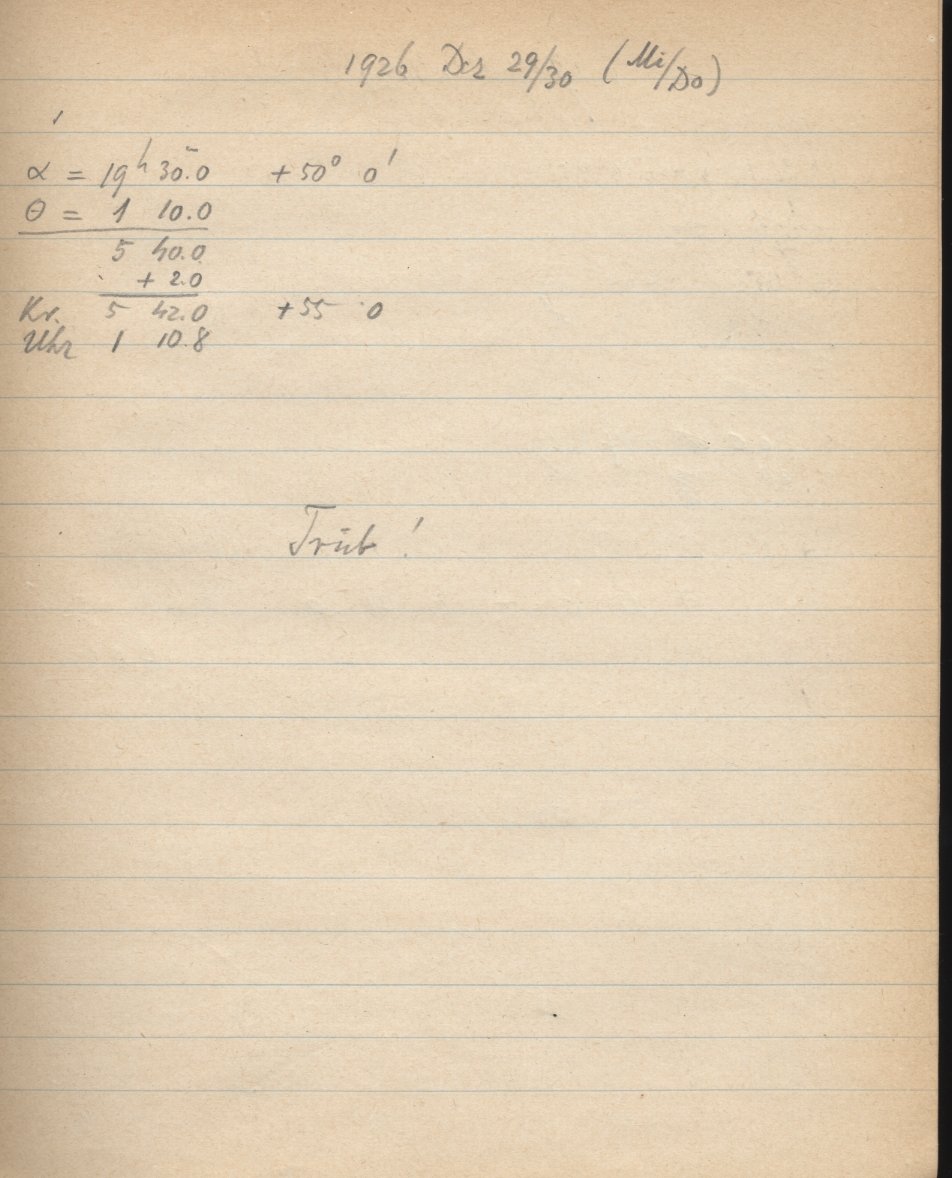 1926 Dez 29/30 (Mi/Do)
α = 19ʰ 30.0 +50° 0'
θ = 1 10.0
5 40.0
+ 2.0
Kr. 5 42.0 +55 0
Uhr 1 10.8
Trüb!